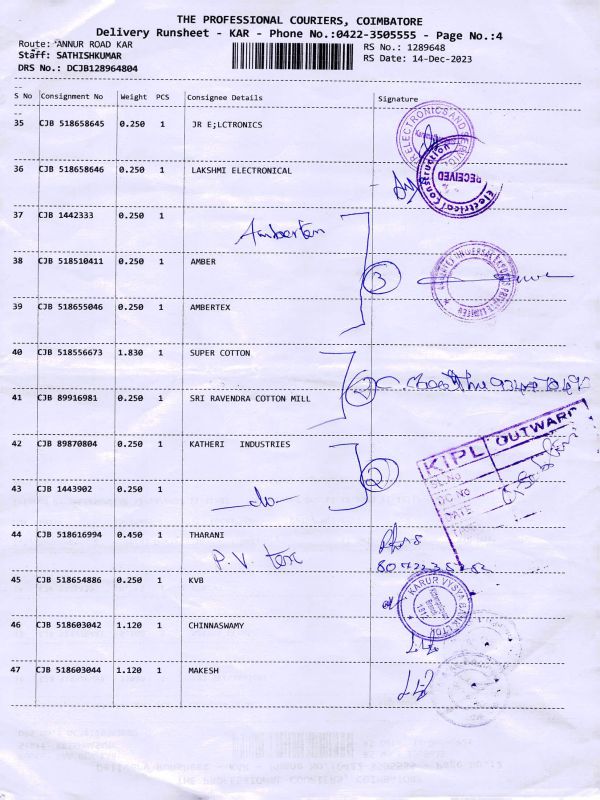 THE PROFESSIONAL COURIERS, COIMBATORE
Delivery Runsheet - KAR - Phone No.:0422-3505555 - Page No.:4
Route: ANNUR ROAD KAR RS No.: 1289648
Staff: SATHISHKUMAR RS Date: 14-Dec-2023
DRS No.: DCJB128964804
S No Consignment No Weight PCS Consignee Details Signature
35 CJB 518658645 0.250 1 JR E;LCTRONICS
36 CJB 518658646 0.250 1 LAKSHMI ELECTRONICAL
Electrical Construction
RECEIVED
37 CJB 1442333 0.250 1
Ambertex
38 CJB 518510411 0.250 1 AMBER
3
39 CJB 518655046 0.250 1 AMBERTEX
40 CJB 518556673 1.830 1 SUPER COTTON
2
41 CJB 89916981 0.250 1 SRI RAVENDRA COTTON MILL
42 CJB 89870804 0.250 1 KATHERI INDUSTRIES
KIPL OUTWARD
2
43 CJB 1443902 0.250 1
-do-
DC NO
DATE
44 CJB 518616994 0.450 1 THARANI
P.V. tex
45 CJB 518654886 0.250 1 KVB
KARUR VYSYA BANK LTD
46 CJB 518603042 1.120 1 CHINNASWAMY
47 CJB 518603044 1.120 1 MAKESH